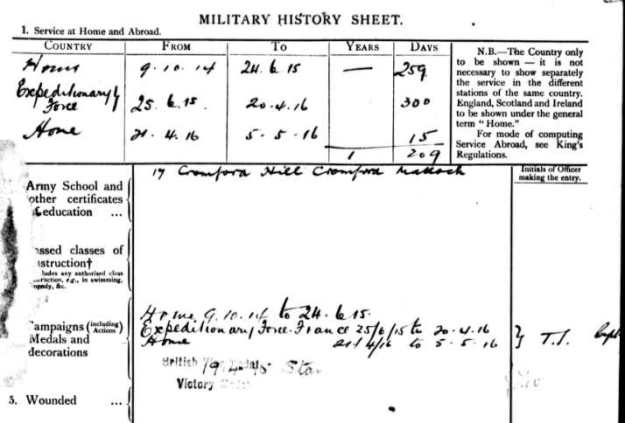 MILITARY HISTORY SHEET.
1. Service at Home and Abroad.
COUNTRY FROM TO YEARS DAYS
Home 9.10.14 24.6.15 — 259
Expeditionary Force 25.6.15. 20.4.16 300
Home 21.4.16 5-5-16 15
1 209
N.B.—The Country only
to be shown — it is not
necessary to show separately
the service in the different
stations of the same country.
England, Scotland and Ireland
to be shown under the general
term "Home."
For mode of computing
Service Abroad, see King's
Regulations.
Initials of Officer
making the entry.
Army School and
other certificates
education ...
17 Cromford Hill Cromford Matlock
ssed classes of
struction†
cludes any authorised class
ruction, e.g., in swimming,
&c.
Campaigns (including Actions)
Medals and
decorations
Home 9.10.14 to 24.6.15.
Expeditionary Force-France 25/6/15 to 20.4.16
Home 21/4/16 to 5-5-16
T.J. Capt
British
1914-15 Star
Victory
5. Wounded ...